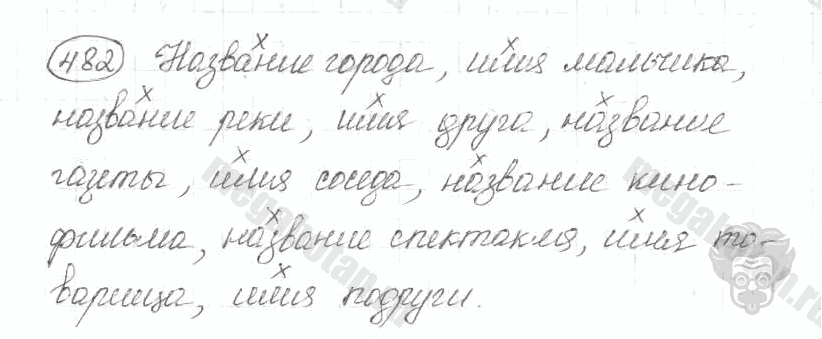 482 Название города, имя мальчика,
название реки, имя друга, название
газеты, имя соседа, название кино-
фильма, название спектакля, имя то-
варища, имя подруги.
megabotan.ru
megabotan.ru